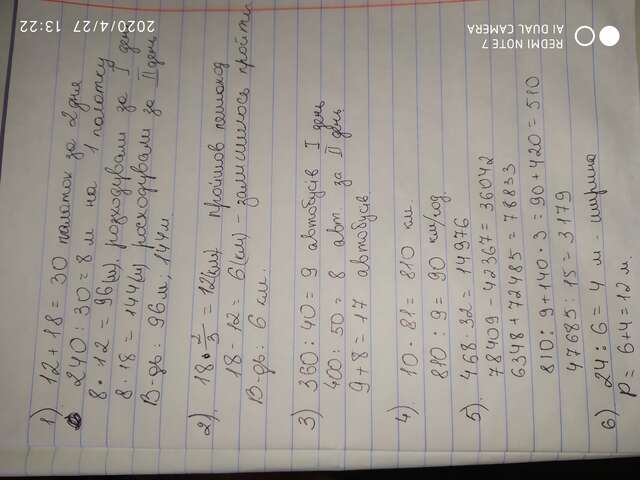 1) 12 + 18 = 30 палаток за 2 дня
240 : 30 = 8 м на 1 палатку
8 · 12 = 96 (м) розходували за I день
8 · 18 = 144 (м) росходували за II день
В-дь: 96 м, 144 м.
2) 18 · 2/3 = 12 (км) пройшов пешоход
18 - 12 = 6 (км) - залишилось пройти
В-дь: 6 км.
3) 360 : 40 = 9 автобусів I день
400 : 50 = 8 авт. за II день
9 + 8 = 17 автобусів.
4) 10 · 81 = 810 км.
810 : 9 = 90 км/год.
5) 468 · 32 = 14976
78409 - 42367 = 36042
6348 + 72485 = 78833
810 : 9 + 140 · 3 = 90 + 420 = 510
47685 : 15 = 3179
6) 24 : 6 = 4 м. ширина
P = 6 + 4 = 12 м.
REDMI NOTE 7
AI DUAL CAMERA
2020/4/27 13:22